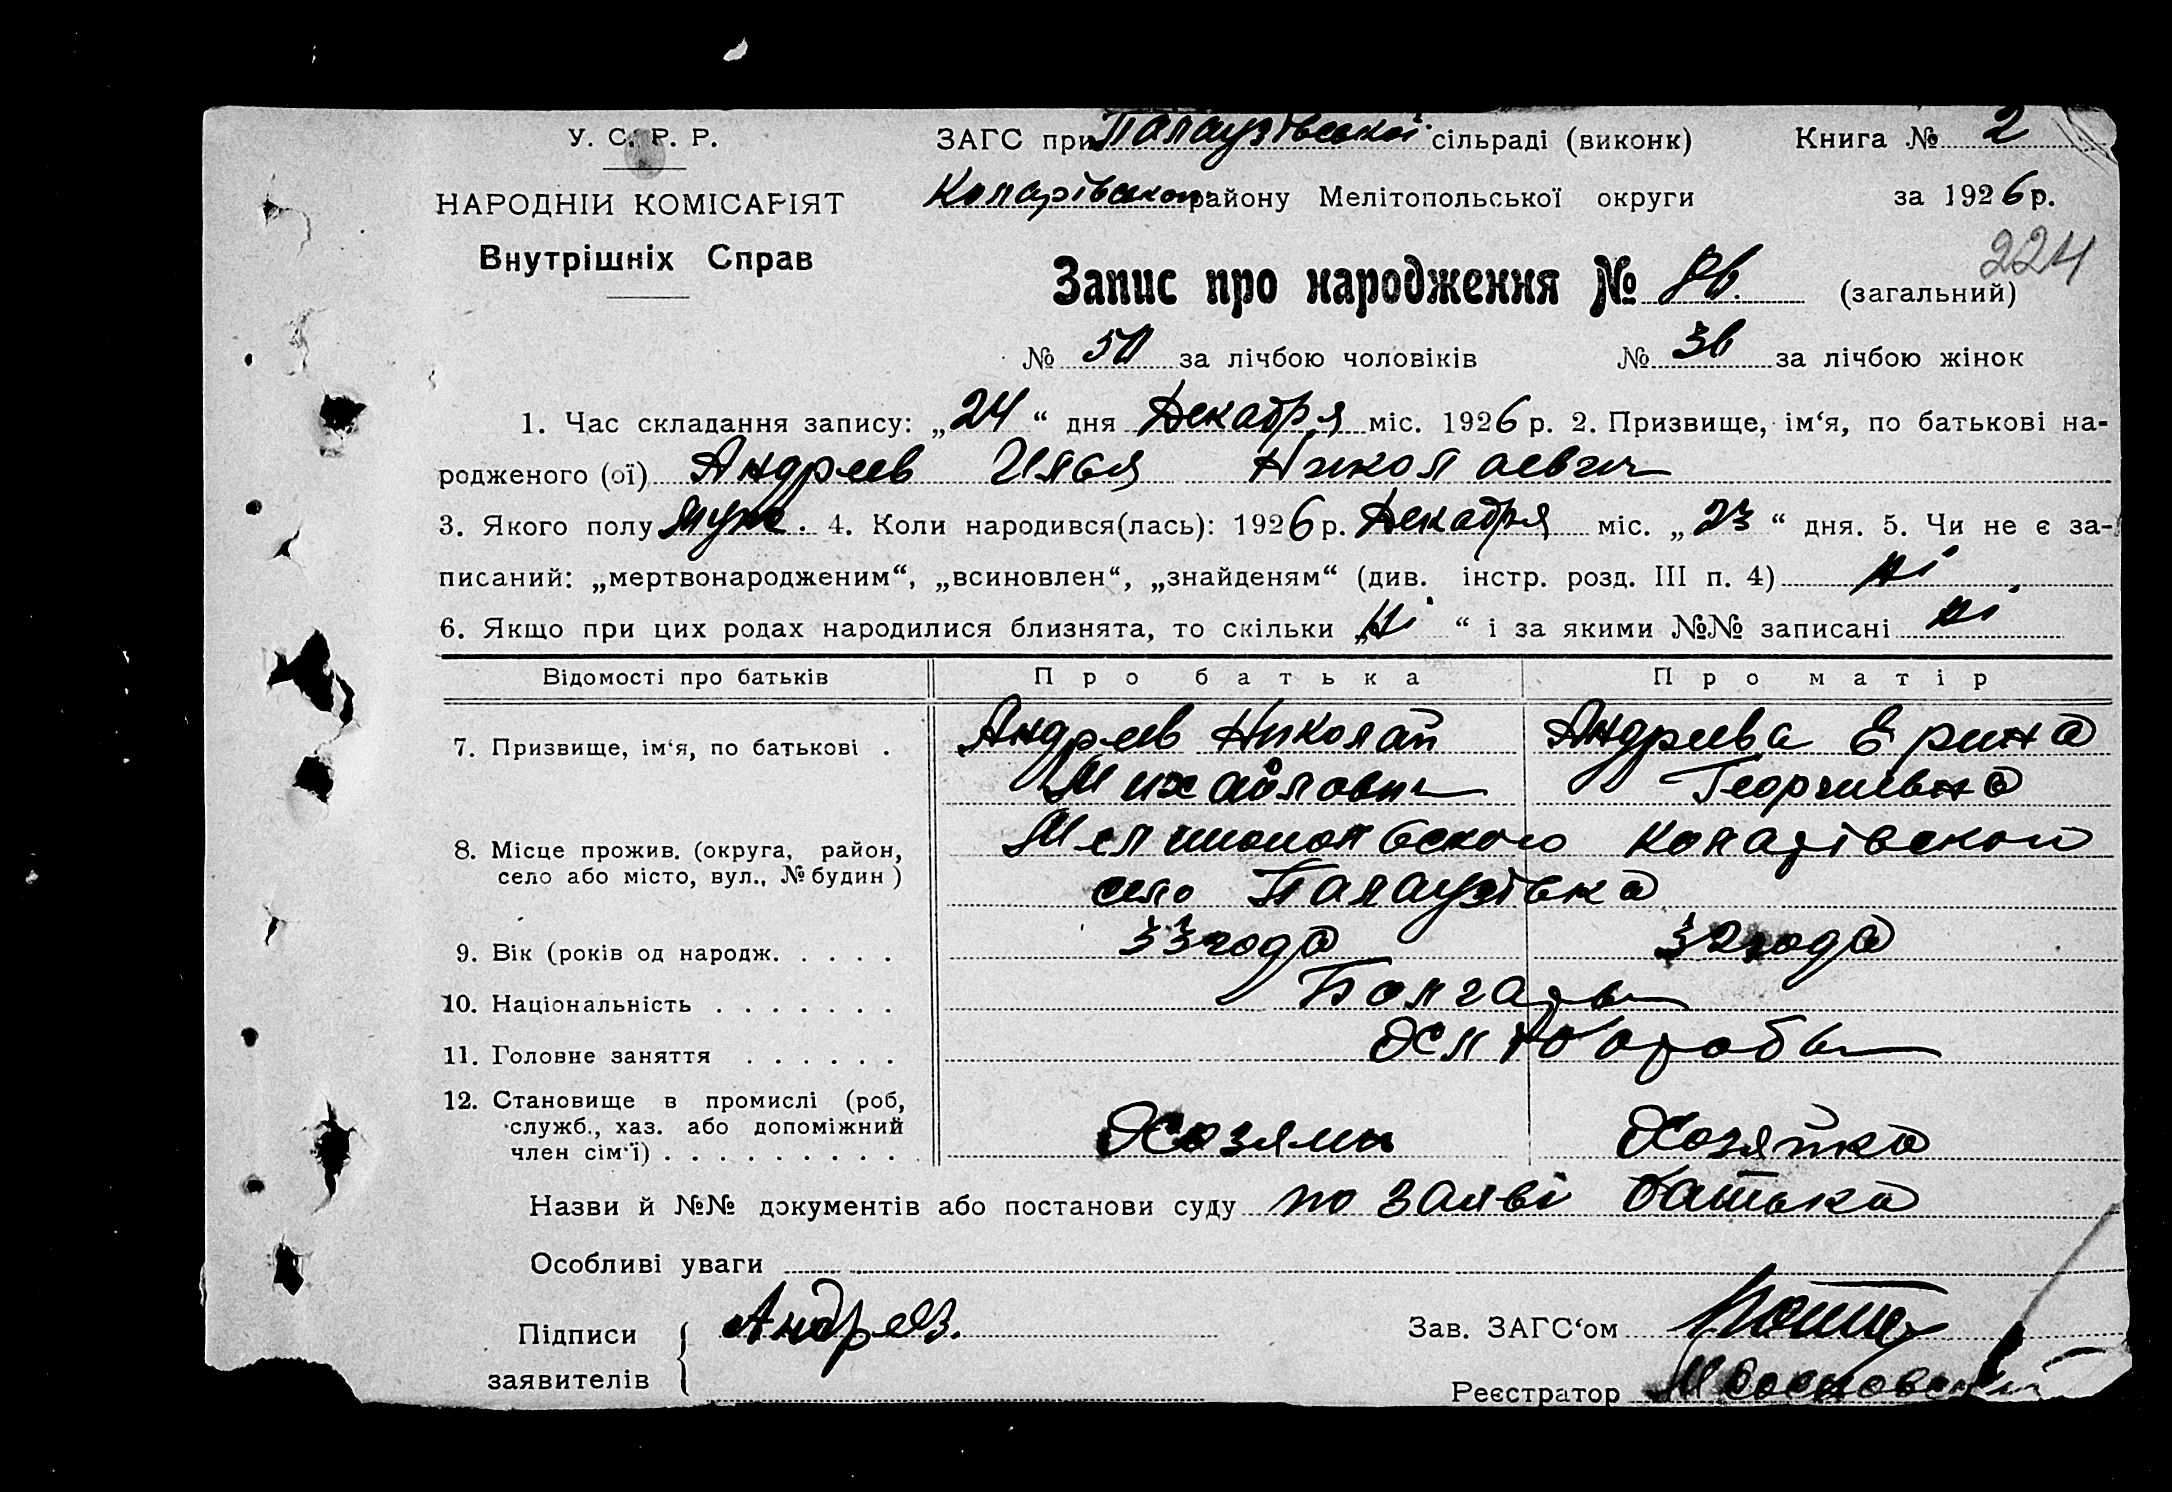 У. С. Р. Р.
ЗАГС при Палаузівської сільраді (виконк)
Книга № 2
НАРОДНІЙ КОМІСАРІЯТ
Коларівського району Мелітопольської округи
за 1926 р.
Внутрішніх Справ
224
Запис про народження № 86. (загальний)
№ 50 за лічбою чоловіків № 36 за лічбою жінок
1. Час складання запису: „24“ дня Декабря міс. 1926 р. 2. Призвище, ім‘я, по батькові на-
родженого (ої) Андреев Илья Николаевич
3. Якого полу муж. 4. Коли народився(лась): 1926 р. Декабря міс. „23“ дня. 5. Чи не є за-
писаний: „мертвонародженим“, „всиновлен“, „знайденям“ (див. інстр. розд. III п. 4) ні
6. Якщо при цих родах народилися близнята, то скільки „ні“ і за якими №№ записані ні
Відомості про батьків Про батька Про матір
7. Призвище, ім‘я, по батькові . Андреев Николай Андреева Ерина
Михайлович Георгиевна
8. Місце прожив. (округа, район, Мелитопольского Коларівской
село або місто, вул., № будин) село Палаузівка
9. Вік (років од народж. . . . . 33 года 32 года
10. Національність . . . . . . . Болгары
11. Головне заняття . . . . . . Хлібороби
12. Становище в промислі (роб,
служб., хаз. або допоміжний
член сім‘ї) . . . . . . . . . . Хозяин Хозяйка
Назви й №№ документів або постанови суду по заяві батька
Особливі уваги
Підписи
заявителів
Андреев.
Зав. ЗАГС‘ом
Реєстратор М Сосновский